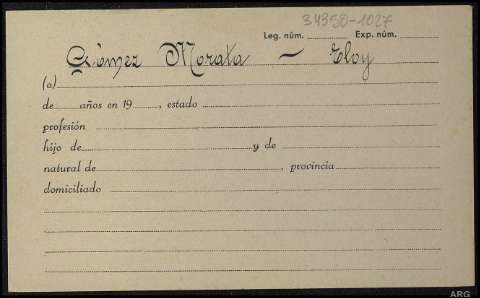 34350-1027
Leg. núm. Exp. núm.
Gómez Morata — Eloy
(a)
de años en 19 , estado
profesión
hijo de y de
natural de , provincia
domiciliado
ARG